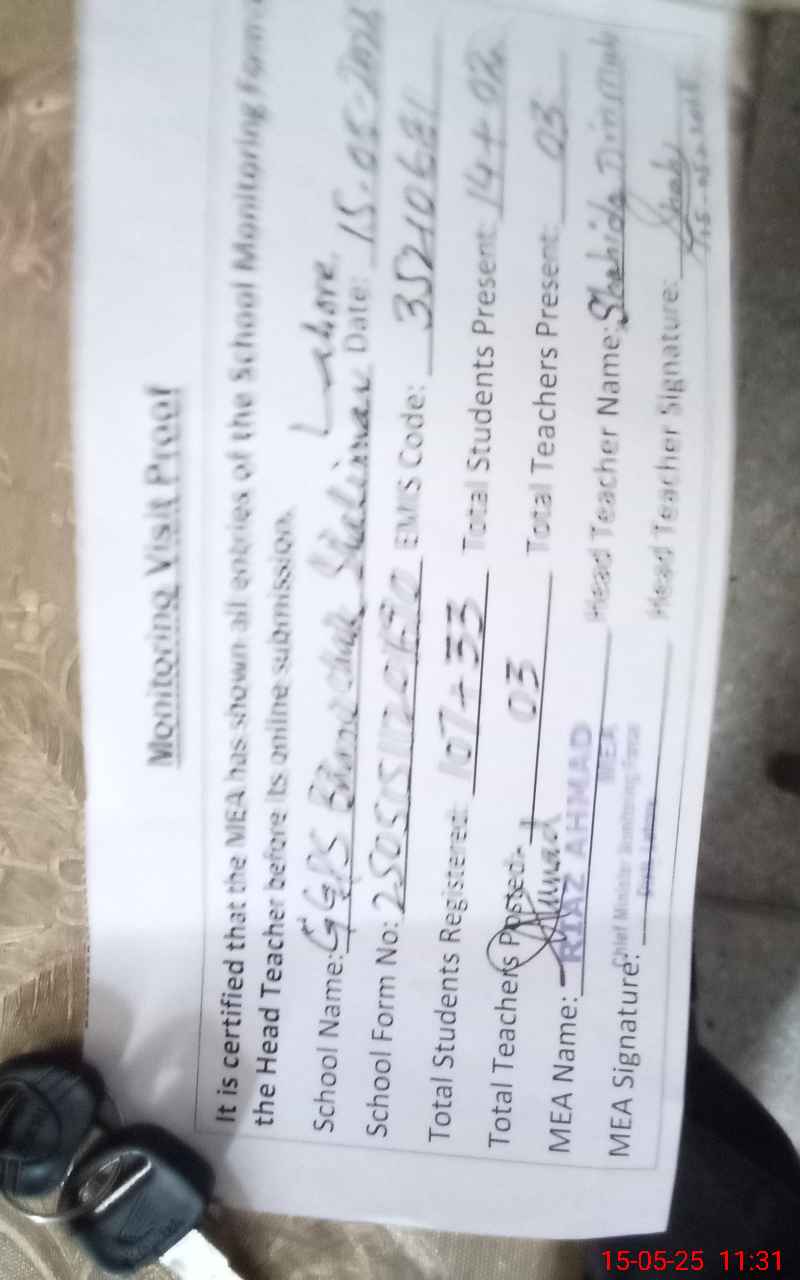 Monitoring Visit Proof
It is certified that the MEA has shown all entries of the School Monitoring Form
the Head Teacher before its online submission.
School Name: GGPS Shalimar Lahore. Date: 15-05-
School Form No: EMIS Code: 35210681
Total Students Registered: 107+33 Total Students Present: 14+02
Total Teachers Posted: 03 Total Teachers Present: 03
MEA Name: RIAZ AHMAD Head Teacher Name: Shahida
MEA
MEA Signature: Chief Minister Monitoring Force Head Teacher Signature:
15-05-25 11:31